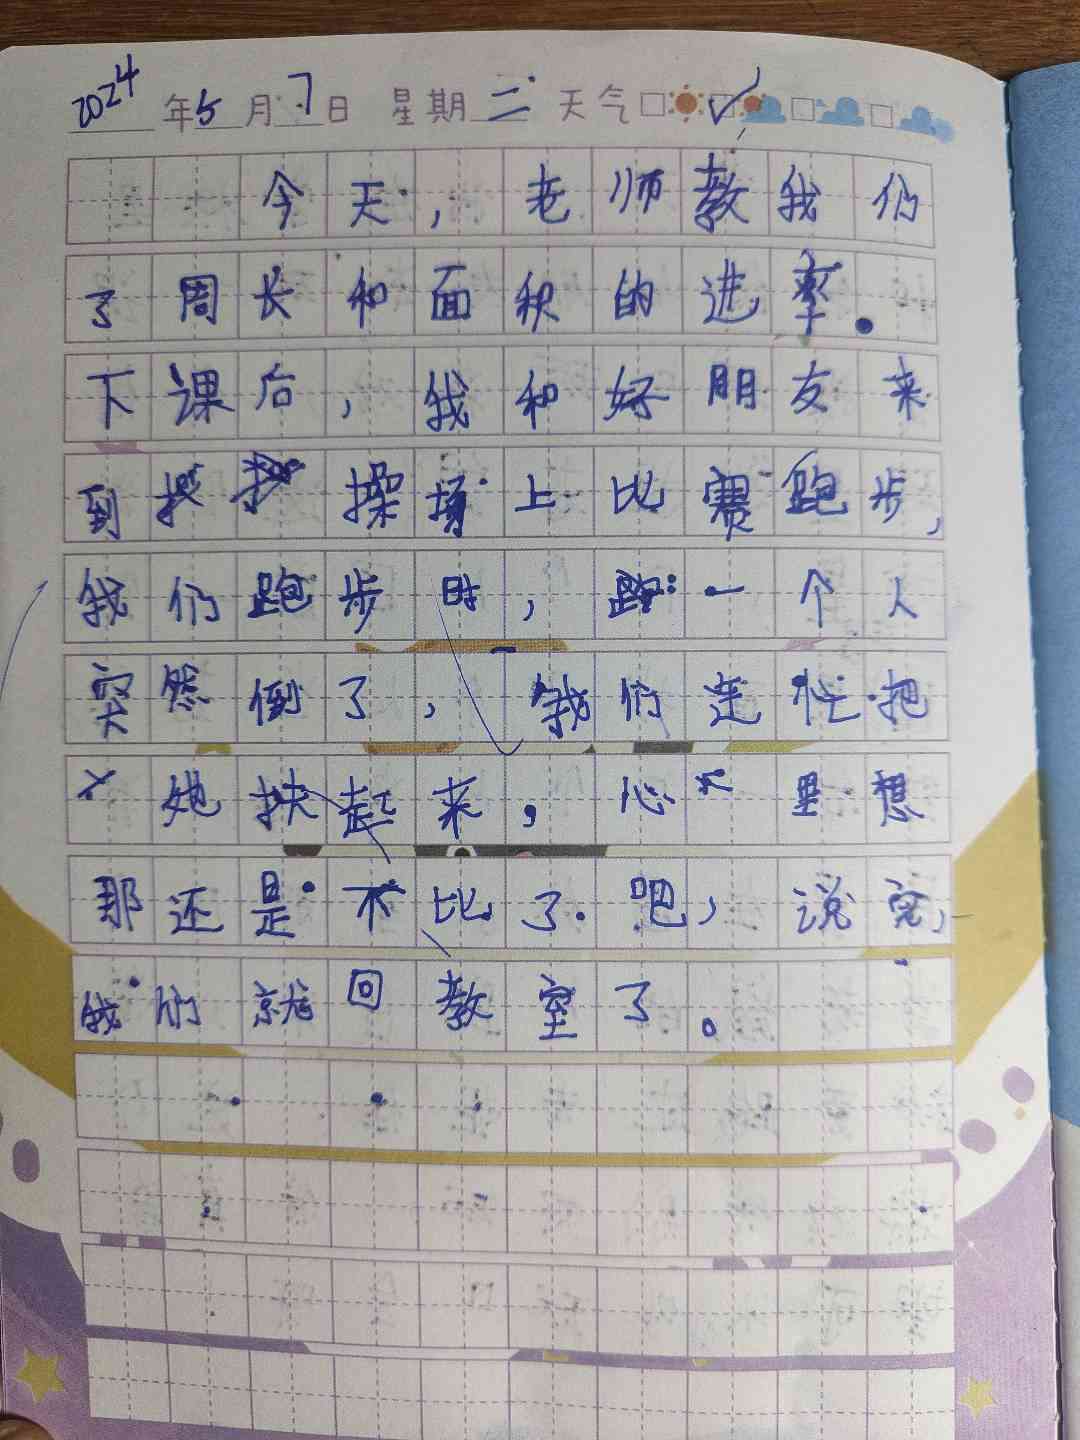 2024年5月7日 星期二 天气
今天，老师教我们
了周长和面积的进率。
下课后，我和好朋友来
到操场上比赛跑步，
我们跑步时，跑一个人
突然倒了，我们连忙把
她扶起来，心里想
那还是不比了吧，说完，
我们就回教室了。